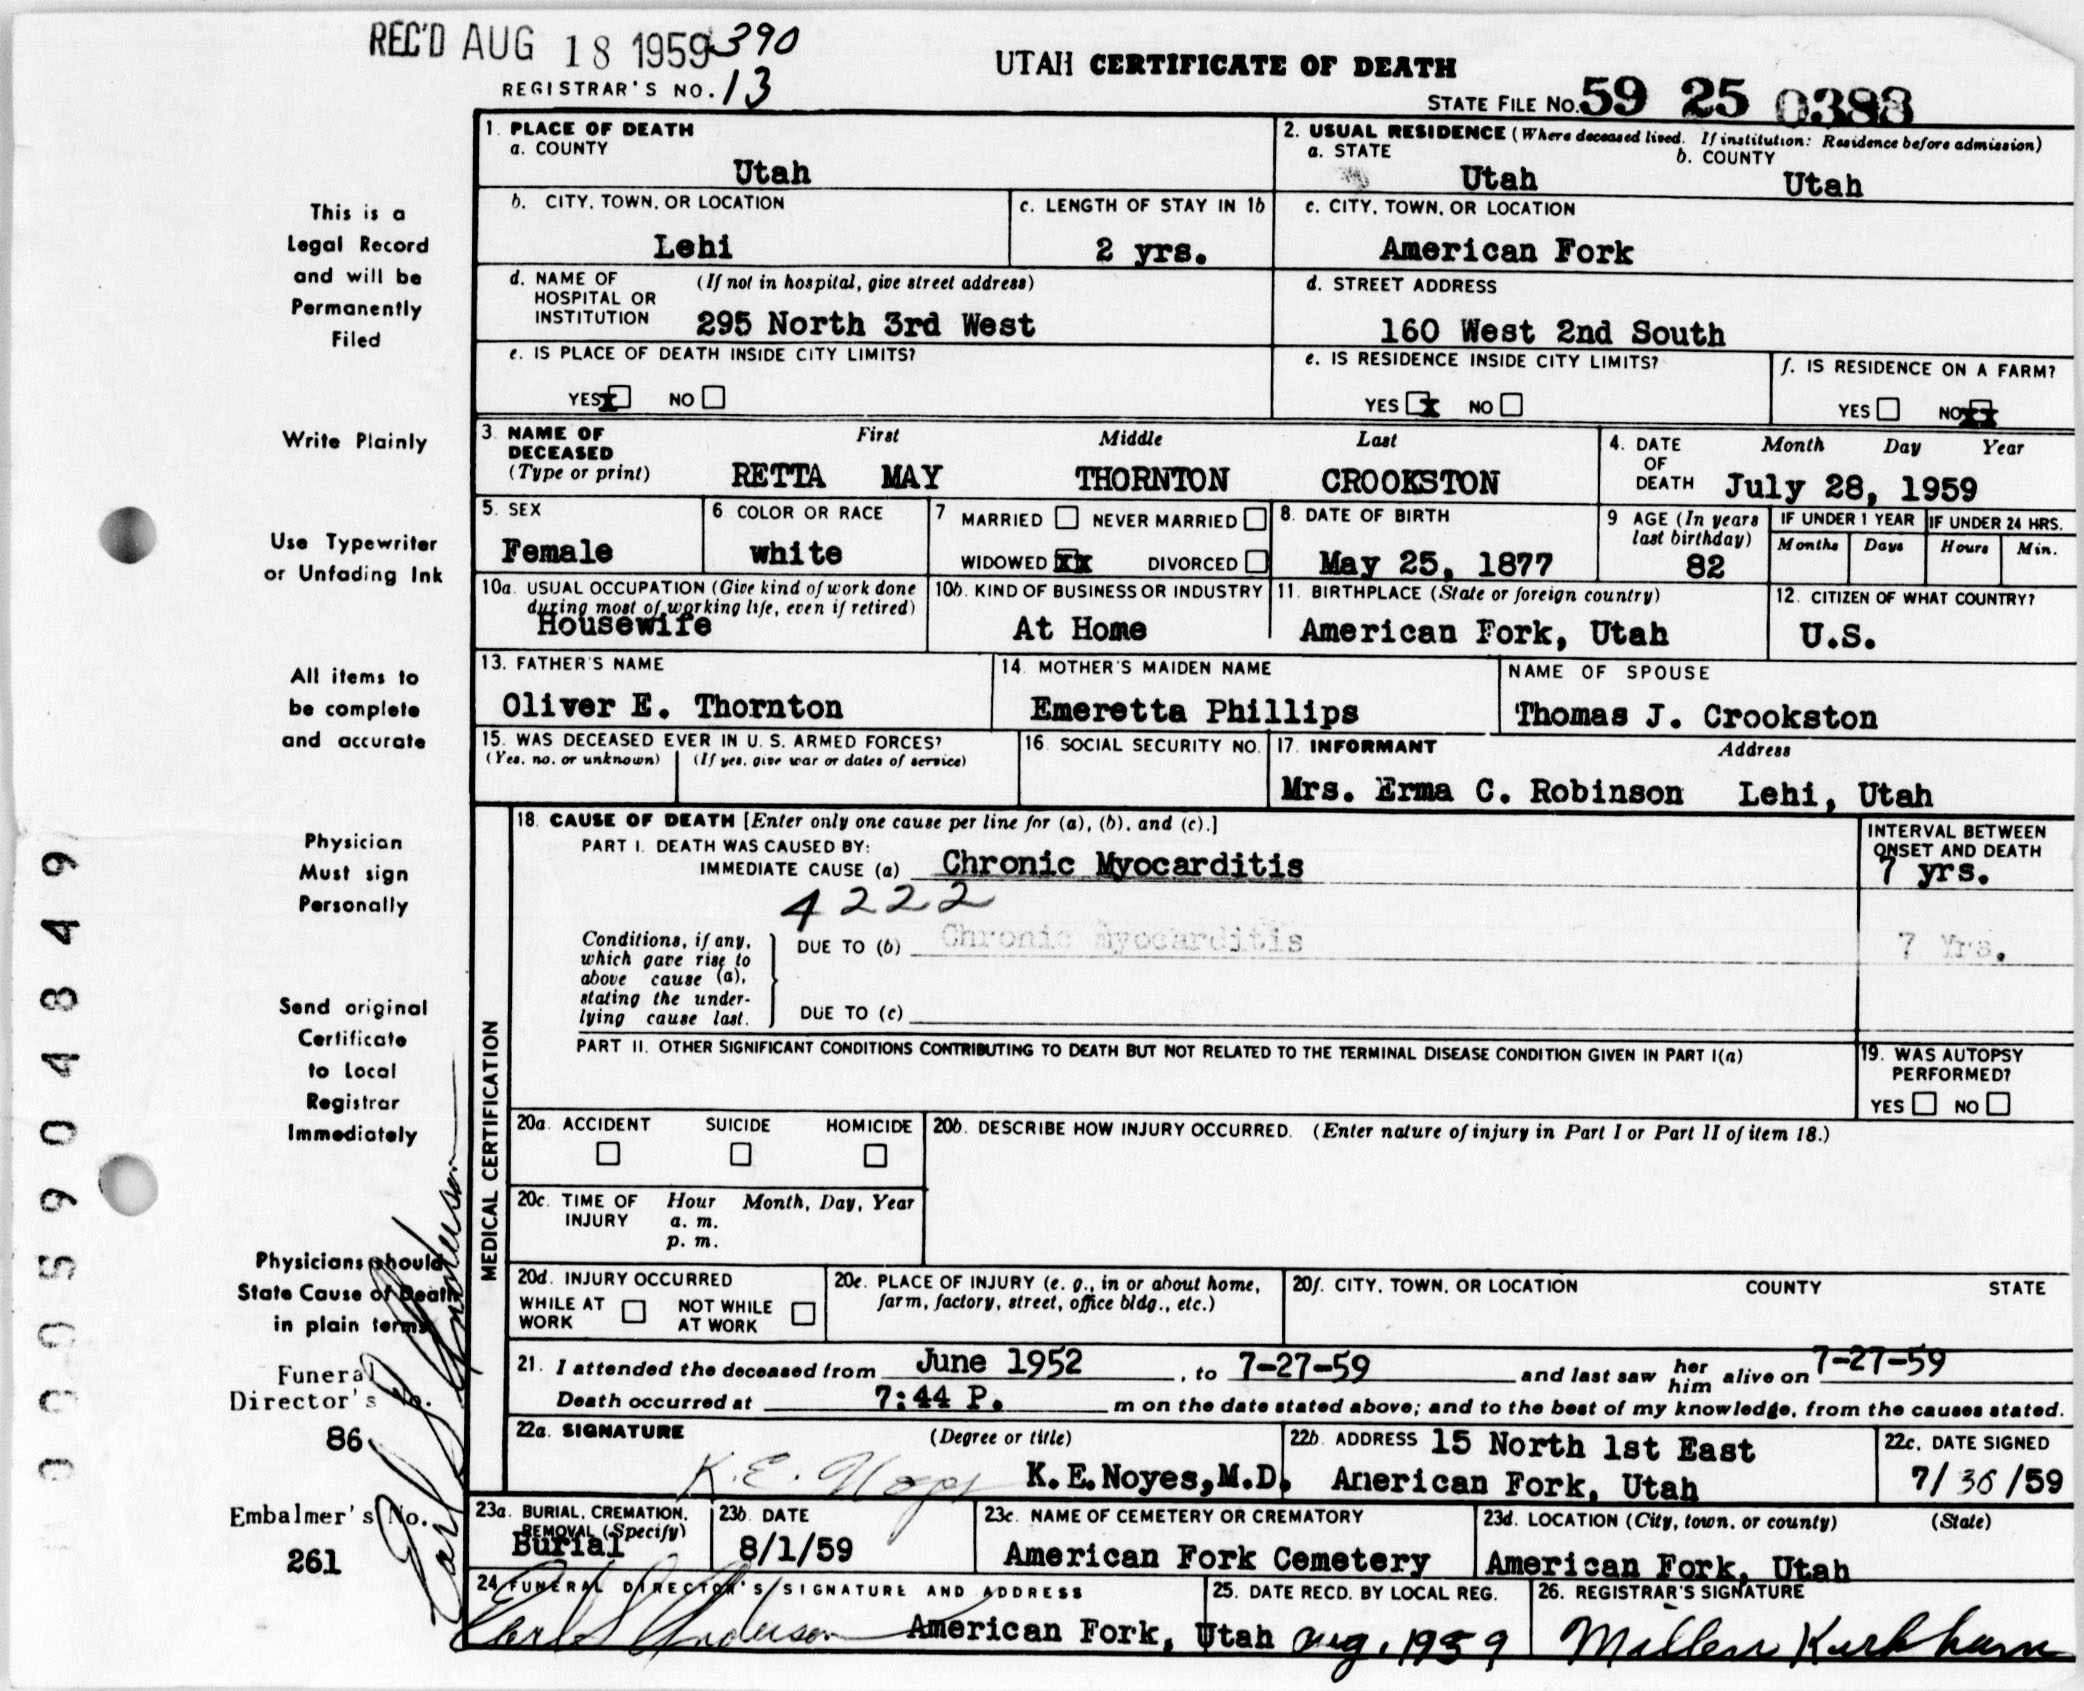 REC'D AUG 18 1959 390
REGISTRAR'S NO. 13
UTAH CERTIFICATE OF DEATH
STATE FILE NO. 59 25 0388
1. PLACE OF DEATH
a. COUNTY
Utah
2. USUAL RESIDENCE (Where deceased lived. If institution: Residence before admission)
a. STATE b. COUNTY
Utah Utah
b. CITY, TOWN, OR LOCATION
Lehi
c. LENGTH OF STAY IN 1b
2 yrs.
c. CITY, TOWN, OR LOCATION
American Fork
d. NAME OF HOSPITAL OR INSTITUTION (If not in hospital, give street address)
295 North 3rd West
d. STREET ADDRESS
160 West 2nd South
e. IS PLACE OF DEATH INSIDE CITY LIMITS?
YES x NO
e. IS RESIDENCE INSIDE CITY LIMITS?
YES x NO
f. IS RESIDENCE ON A FARM?
YES NO xx
3. NAME OF DECEASED (Type or print)
First Middle Last
RETTA MAY THORNTON CROOKSTON
4. DATE OF DEATH Month Day Year
July 28, 1959
5. SEX
Female
6 COLOR OR RACE
white
7 MARRIED NEVER MARRIED
WIDOWED xx DIVORCED
8. DATE OF BIRTH
May 25, 1877
9 AGE (In years last birthday)
82
IF UNDER 1 YEAR IF UNDER 24 HRS.
Months Days Hours Min.
10a. USUAL OCCUPATION (Give kind of work done during most of working life, even if retired)
Housewife
10b. KIND OF BUSINESS OR INDUSTRY
At Home
11. BIRTHPLACE (State or foreign country)
American Fork, Utah
12. CITIZEN OF WHAT COUNTRY?
U.S.
13. FATHER'S NAME
Oliver E. Thornton
14. MOTHER'S MAIDEN NAME
Emeretta Phillips
NAME OF SPOUSE
Thomas J. Crookston
15. WAS DECEASED EVER IN U. S. ARMED FORCES?
(Yes, no, or unknown) (If yes, give war or dates of service)
16. SOCIAL SECURITY NO.
17. INFORMANT Address
Mrs. Erma C. Robinson Lehi, Utah
MEDICAL CERTIFICATION
18. CAUSE OF DEATH [Enter only one cause per line for (a), (b), and (c).]
PART I. DEATH WAS CAUSED BY:
IMMEDIATE CAUSE (a) Chronic Myocarditis
INTERVAL BETWEEN ONSET AND DEATH
7 yrs.
4222
Conditions, if any, which gave rise to above cause (a), stating the underlying cause last.
DUE TO (b) Chronic Myocarditis
7 Yrs.
DUE TO (c)
PART II. OTHER SIGNIFICANT CONDITIONS CONTRIBUTING TO DEATH BUT NOT RELATED TO THE TERMINAL DISEASE CONDITION GIVEN IN PART I(a)
19. WAS AUTOPSY PERFORMED?
YES NO
20a. ACCIDENT SUICIDE HOMICIDE
20b. DESCRIBE HOW INJURY OCCURRED. (Enter nature of injury in Part I or Part II of item 18.)
20c. TIME OF INJURY Hour Month, Day, Year
a. m.
p. m.
20d. INJURY OCCURRED
WHILE AT WORK NOT WHILE AT WORK
20e. PLACE OF INJURY (e. g., in or about home, farm, factory, street, office bldg., etc.)
20f. CITY, TOWN, OR LOCATION COUNTY STATE
21. I attended the deceased from June 1952, to 7-27-59 and last saw her him alive on 7-27-59
Death occurred at 7:44 P. m on the date stated above; and to the best of my knowledge, from the causes stated.
22a. SIGNATURE (Degree or title)
K. E. Noyes K.E. Noyes, M.D.
22b. ADDRESS 15 North 1st East
American Fork, Utah
22c. DATE SIGNED
7/30/59
23a. BURIAL, CREMATION, REMOVAL (Specify)
Burial
23b. DATE
8/1/59
23c. NAME OF CEMETERY OR CREMATORY
American Fork Cemetery
23d. LOCATION (City, town, or county) (State)
American Fork, Utah
24. FUNERAL DIRECTOR'S SIGNATURE AND ADDRESS
Earl S Anderson American Fork, Utah
25. DATE RECD. BY LOCAL REG.
Aug, 1959
26. REGISTRAR'S SIGNATURE
Kirkham
This is a
Legal Record
and will be
Permanently
Filed
Write Plainly
Use Typewriter
or Unfading Ink
All items to
be complete
and accurate
Physician
Must sign
Personally
Send original
Certificate
to Local
Registrar
Immediately
Physicians should
State Cause of Death
in plain terms
Funeral
Director's No.
86
Embalmer's No.
261
Earl S Anderson
0059048 49